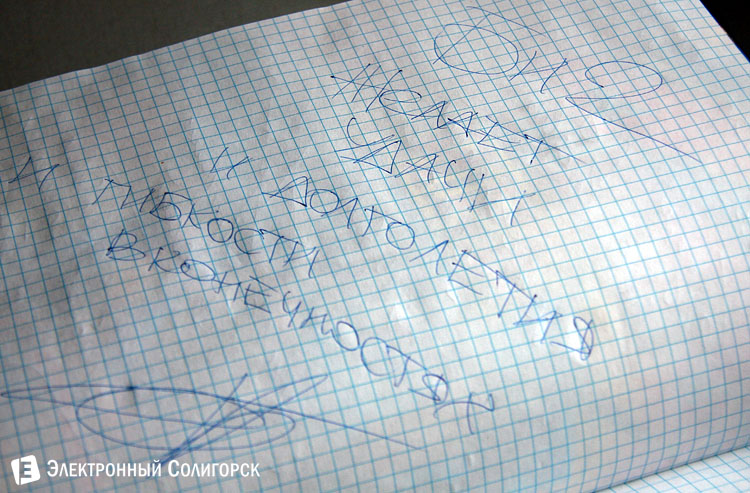 ОН И 2
ЖЕЛАЕТ
УДАЧИ
И ДОЛГОЛЕТИЯ
И ГИБКОСТИ
В КОНЕЧНОСТЯХ
E ЭЛЕКТРОННЫЙ СОЛИГОРСК